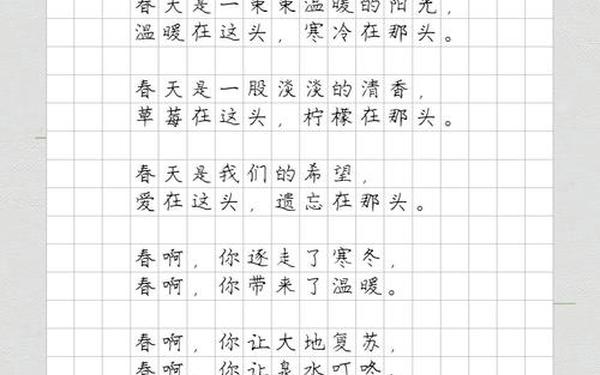 春天是一束束温暖的阳光，
温暖在这头，寒冷在那头。
春天是一股淡淡的清香，
草莓在这头，柠檬在那头。
春天是我们的希望，
爱在这头，遗忘在那头。
春啊，你逐走了寒冬，
春啊，你带来了温暖。
春啊，你让大地复苏，
春啊，你让泉水叮咚，